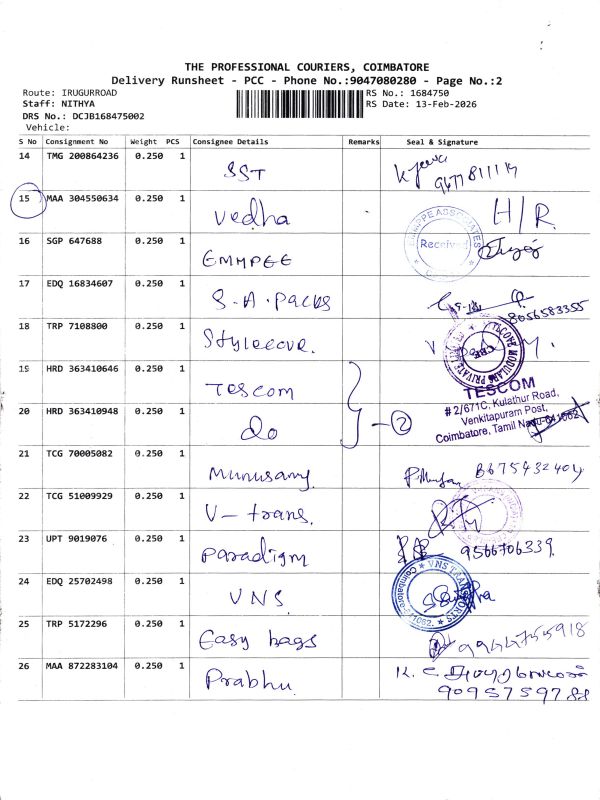 THE PROFESSIONAL COURIERS, COIMBATORE
Delivery Runsheet - PCC - Phone No.:9047080280 - Page No.:2
Route: IRUGURROAD
RS No.: 1684750
Staff: NITHYA
RS Date: 13-Feb-2026
DRS No.: DCJB168475002
Vehicle:
S No Consignment No Weight PCS Consignee Details Remarks Seal & Signature
14 TMG 200864236 0.250 1 SST
9677811114
15 MAA 304550634 0.250 1 Vedha H/R
16 SGP 647688 0.250 1 EMMPEE
Received
17 EDQ 16834607 0.250 1 S.A. Packs
8056583355
18 TRP 7108800 0.250 1
19 HRD 363410646 0.250 1 Tescom
20 HRD 363410948 0.250 1 do
2
TESCOM
# 2/671C, Kulathur Road,
Venkitapuram Post,
Coimbatore, Tamil Nadu-641062
21 TCG 70005082 0.250 1 Munusamy
8675432404
22 TCG 51009929 0.250 1 V-trans.
23 UPT 9019076 0.250 1 Paradigm
9566706339
24 EDQ 25702498 0.250 1 VNS
VNS TRANSPORTS
Coimbatore-641062.
25 TRP 5172296 0.250 1 Easy bags
26 MAA 872283104 0.250 1 Prabhu.
9095759788